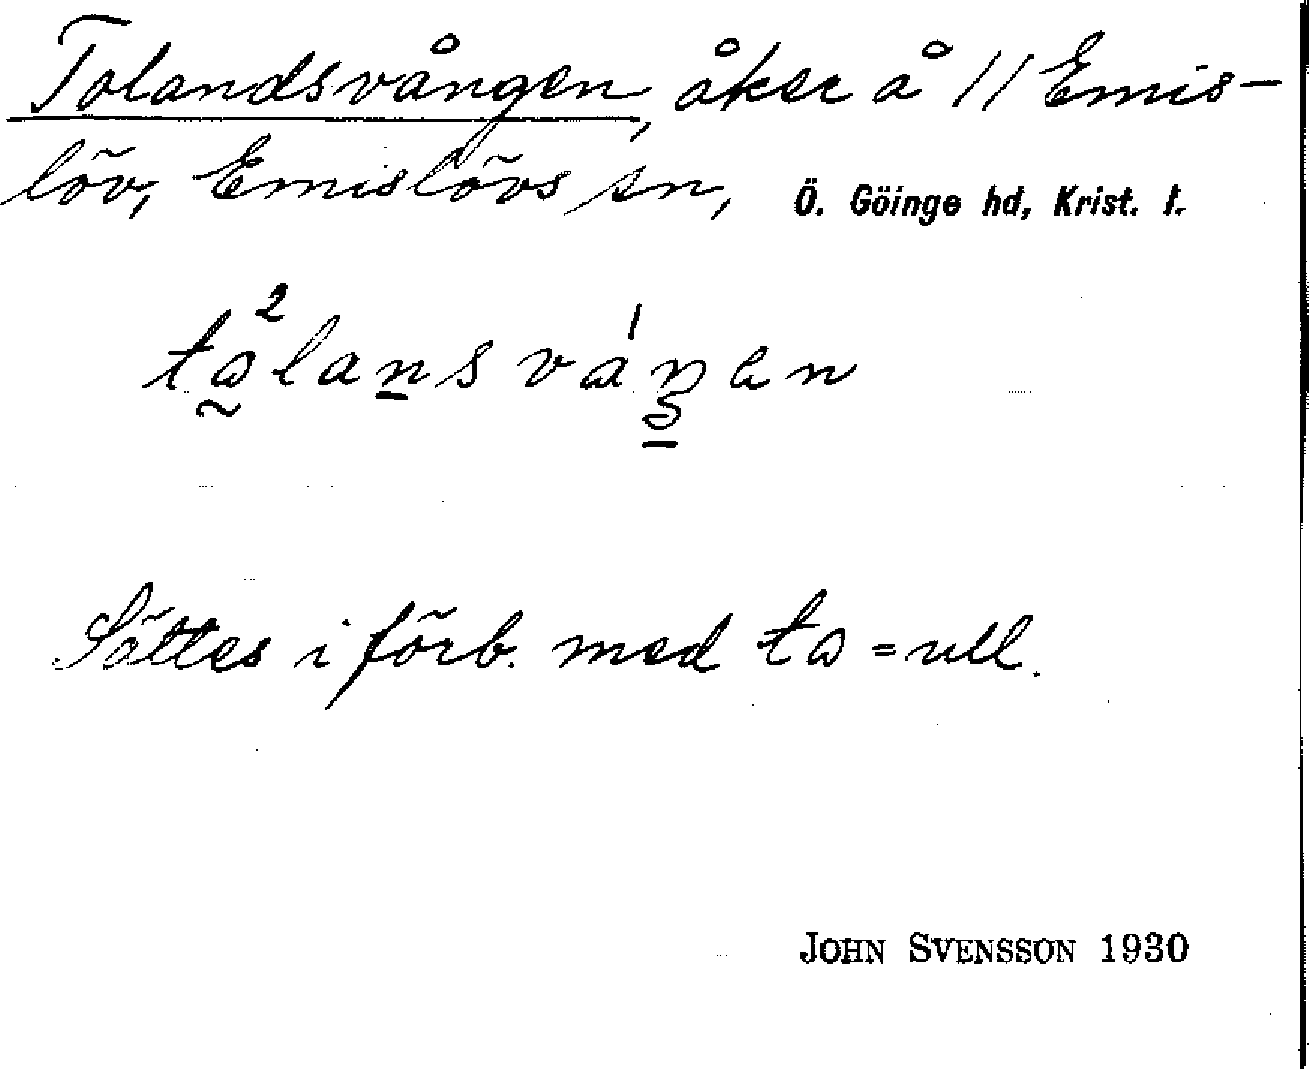 Tolandsvången, åker å 11 Emis-
löv, Emislövs sn, Ö. Göinge hd, Krist. l.
Sättes i förb. med to = ull.
JOHN SVENSSON 1930